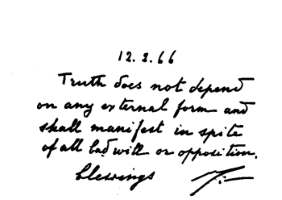 12.2.66
Truth does not depend
on any external form and
shall manifest in spite
of all bad will or opposition.
blessings